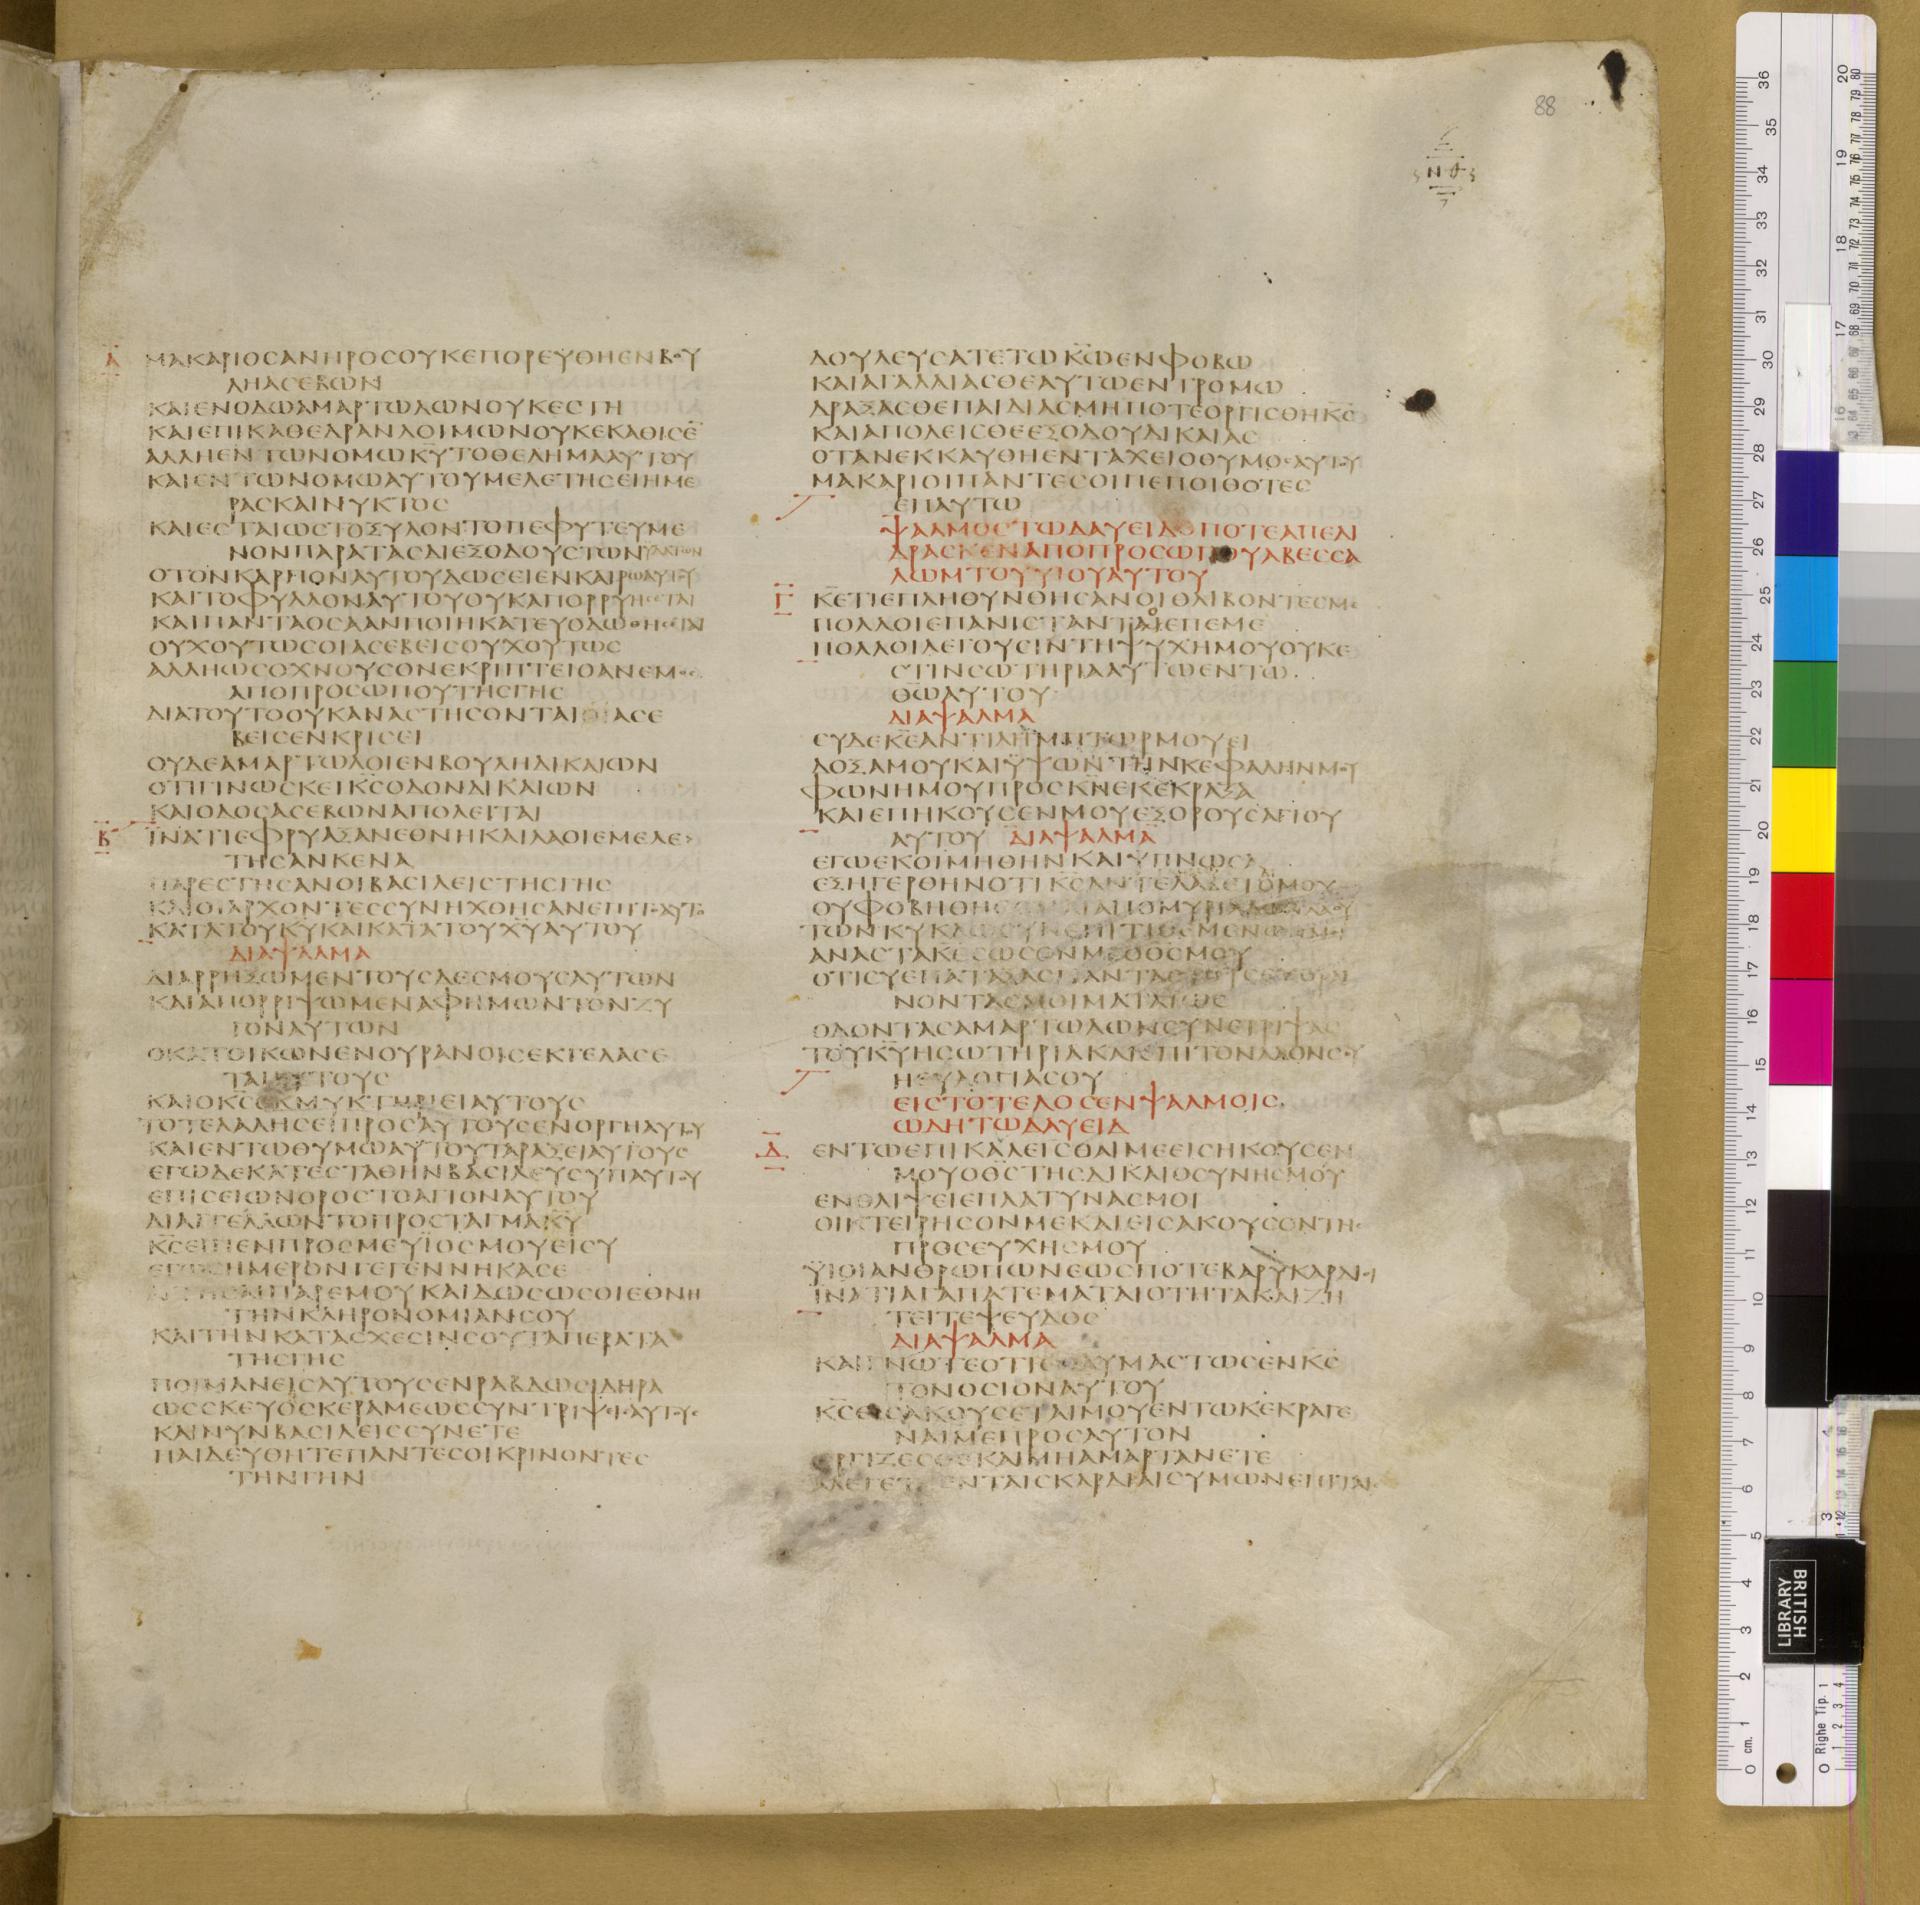 88
ΝΘ
Α
ΜΑΚΑΡΙΟΣΑΝΗΡΟΣΟΥΚΕΠΟΡΕΥΘΗΕΝΒΟΥ
ΛΗΑΣΕΒΩΝ
ΚΑΙΕΝΟΔΩΑΜΑΡΤΩΛΩΝΟΥΚΕΣΤΗ
ΚΑΙΕΠΙΚΑΘΕΔΡΑΝΛΟΙΜΩΝΟΥΚΕΚΑΘΙΣΕ̅
ΑΛΛΗΕΝΤΩΝΟΜΩΚ̅Υ̅ΤΟΘΕΛΗΜΑΑΥΤΟΥ
ΚΑΙΕΝΤΩΝΟΜΩΑΥΤΟΥΜΕΛΕΤΗΣΕΙΗΜΕ
ΡΑΣΚΑΙΝΥΚΤΟΣ
ΚΑΙΕΣΤΑΙΩΣΤΟΞΥΛΟΝΤΟΠΕΦΥΤΕΥΜΕ
ΝΟΝΠΑΡΑΤΑΣΔΙΕΞΟΔΟΥΣΤΩΝΥΔΑΤΩΝ
ΟΤΟΝΚΑΡΠΟΝΑΥΤΟΥΔΩΣΕΙΕΝΚΑΙΡΩΑΥΤΟΥ
ΚΑΙΤΟΦΥΛΛΟΝΑΥΤΟΥΟΥΚΑΠΟΡΡΥΗΣΕΤΑΙ
ΚΑΙΠΑΝΤΑΟΣΑΑΝΠΟΙΗΚΑΤΕΥΟΔΩΘΗΣΕΤΑΙ
ΟΥΧΟΥΤΩΣΟΙΑΣΕΒΕΙΣΟΥΧΟΥΤΩΣ
ΑΛΛΗΩΣΟΧΝΟΥΣΟΝΕΚΡΙΠΤΕΙΟΑΝΕΜΟΣ
ΑΠΟΠΡΟΣΩΠΟΥΤΗΣΓΗΣ
ΔΙΑΤΟΥΤΟΟΥΚΑΝΑΣΤΗΣΟΝΤΑΙΟΙΑΣΕ
ΒΕΙΣΕΝΚΡΙΣΕΙ
ΟΥΔΕΑΜΑΡΤΩΛΟΙΕΝΒΟΥΛΗΔΙΚΑΙΩΝ
ΟΤΙΓΙΝΩΣΚΕΙΚ̅Σ̅ΟΔΟΝΔΙΚΑΙΩΝ
ΚΑΙΟΔΟΣΑΣΕΒΩΝΑΠΟΛΕΙΤΑΙ
Β
ΪΝΑΤΙΕΦΡΥΑΞΑΝΕΘΝΗΚΑΙΛΑΟΙΕΜΕΛΕ>
ΤΗΣΑΝΚΕΝΑ
ΠΑΡΕΣΤΗΣΑΝΟΙΒΑΣΙΛΕΙΣΤΗΣΓΗΣ
ΚΑΙΟΙΑΡΧΟΝΤΕΣΣΥΝΗΧΘΗΣΑΝΕΠΙΤΟΑΥΤΟ
ΚΑΤΑΤΟΥΚ̅Υ̅ΚΑΙΚΑΤΑΤΟΥΧ̅Υ̅ΑΥΤΟΥ
ΔΙΑΨΑΛΜΑ
ΔΙΑΡΡΗΞΩΜΕΝΤΟΥΣΔΕΣΜΟΥΣΑΥΤΩΝ
ΚΑΙΑΠΟΡΡΙΨΩΜΕΝΑΦΗΜΩΝΤΟΝΖΥ
ΓΟΝΑΥΤΩΝ
ΟΚΑΤΟΙΚΩΝΕΝΟΥΡΑΝΟΙΣΕΚΓΕΛΑΣΕ
ΤΑΙΑΥΤΟΥΣ
ΚΑΙΟΚ̅Σ̅ΕΚΜΥΚΤΗΡΙΕΙΑΥΤΟΥΣ
ΤΟΤΕΛΑΛΗΣΕΙΠΡΟΣΑΥΤΟΥΣΕΝΟΡΓΗΑΥΤΟΥ
ΚΑΙΕΝΤΩΘΥΜΩΑΥΤΟΥΤΑΡΑΞΕΙΑΥΤΟΥΣ
ΕΓΩΔΕΚΑΤΕΣΤΑΘΗΝΒΑΣΙΛΕΥΣΥΠΑΥΤΟΥ
ΕΠΙΣΕΙΩΝΟΡΟΣΤΟΑΓΙΟΝΑΥΤΟΥ
ΔΙΑΓΓΕΛΛΩΝΤΟΠΡΟΣΤΑΓΜΑΚ̅Υ̅
Κ̅Σ̅ΕΙΠΕΝΠΡΟΣΜΕΥΪΟΣΜΟΥΕΙΣΥ
ΕΓΩΣΗΜΕΡΟΝΓΕΓΕΝΝΗΚΑΣΕ
ΑΙΤΗΣΑΙΠΑΡΕΜΟΥΚΑΙΔΩΣΩΣΟΙΕΘΝΗ
ΤΗΝΚΛΗΡΟΝΟΜΙΑΝΣΟΥ
ΚΑΙΤΗΝΚΑΤΑΣΧΕΣΙΝΣΟΥΤΑΠΕΡΑΤΑ
ΤΗΣΓΗΣ
ΠΟΙΜΑΝΕΙΣΑΥΤΟΥΣΕΝΡΑΒΔΩΣΙΔΗΡΑ
ΩΣΣΚΕΥΟΣΚΕΡΑΜΕΩΣΣΥΝΤΡΙΨΕΙΣΑΥΤΟΥΣ
ΚΑΙΝΥΝΒΑΣΙΛΕΙΣΣΥΝΕΤΕ
ΠΑΙΔΕΥΘΗΤΕΠΑΝΤΕΣΟΙΚΡΙΝΟΝΤΕΣ
ΤΗΝΓΗΝ
ΔΟΥΛΕΥΣΑΤΕΤΩΚ̅Ω̅ΕΝΦΟΒΩ
ΚΑΙΑΓΑΛΛΙΑΣΘΕΑΥΤΩΕΝΤΡΟΜΩ
ΔΡΑΞΑΣΘΕΠΑΙΔΙΑΣΜΗΠΟΤΕΟΡΓΙΣΘΗΚ̅Σ̅
ΚΑΙΑΠΟΛΕΙΣΘΕΕΞΟΔΟΥΔΙΚΑΙΑΣ
ΟΤΑΝΕΚΚΑΥΘΗΕΝΤΑΧΕΙΟΘΥΜΟΣΑΥΤΟΥ
ΜΑΚΑΡΙΟΙΠΑΝΤΕΣΟΙΠΕΠΟΙΘΟΤΕΣ
ΕΠΑΥΤΩ
ΨΑΛΜΟΣΤΩΔΑΥΕΙΔΟΠΟΤΕΑΠΕΔΙ
ΔΡΑΣΚΕΝΑΠΟΠΡΟΣΩΠΟΥΑΒΕΣΣΑ
ΛΩΜΤΟΥΥΙΟΥΑΥΤΟΥ
Γ
Κ̅Ε̅ΤΙΕΠΛΗΘΥΝΘΗΣΑΝΟΙΘΛΙΒΟΝΤΕΣΜΕ
ΠΟΛΛΟΙΕΠΑΝΙΣΤΑΝΤΑΙΕΠΕΜΕ
ΠΟΛΛΟΙΛΕΓΟΥΣΙΝΤΗΨΥΧΗΜΟΥΟΥΚΕ
ΣΤΙΝΣΩΤΗΡΙΑΑΥΤΩΕΝΤΩ
Θ̅Ω̅ΑΥΤΟΥ
ΔΙΑΨΑΛΜΑ
ΣΥΔΕΚ̅Ε̅ΑΝΤΙΛΗΜΠΤΩΡΜΟΥΕΙ
ΔΟΞΑΜΟΥΚΑΙΫΨΩΝΤΗΝΚΕΦΑΛΗΝΜΟΥ
ΦΩΝΗΜΟΥΠΡΟΣΚ̅Ν̅ΕΚΕΚΡΑΞΑ
ΚΑΙΕΠΗΚΟΥΣΕΝΜΟΥΕΞΟΡΟΥΣΑΓΙΟΥ
ΑΥΤΟΥ ΔΙΑΨΑΛΜΑ
ΕΓΩΕΚΟΙΜΗΘΗΝΚΑΙΥΠΝΩΣΑ
ΕΞΗΓΕΡΘΗΝΟΤΙΚ̅Σ̅ΑΝΤΕΛΑΒΕΤΟΜΟΥ
ΟΥΦΟΒΗΘΗΣΟΜΑΙΑΠΟΜΥΡΙΑΔΩΝΛΑΟΥ
ΤΩΝΚΥΚΛΩΣΥΝΕΠΙΤΙΘΕΜΕΝΩΝΜΟΙ
ΑΝΑΣΤΑΚ̅Ε̅ΣΩΣΟΝΜΕΟΘ̅Σ̅ΜΟΥ
ΟΤΙΣΥΕΠΑΤΑΞΑΣΠΑΝΤΑΣΤΟΥΣΕΧΘΡΑΙ
ΝΟΝΤΑΣΜΟΙΜΑΤΑΙΩΣ
ΟΔΟΝΤΑΣΑΜΑΡΤΩΛΩΝΣΥΝΕΤΡΙΨΑΣ
ΤΟΥΚ̅Υ̅ΗΣΩΤΗΡΙΑΚΑΙΕΠΙΤΟΝΛΑΟΝΣΟΥ
ΗΕΥΛΟΓΙΑΣΟΥ
ΕΙΣΤΟΤΕΛΟΣΕΝΨΑΛΜΟΙΣ
ΩΔΗΤΩΔΑΥΕΙΔ
Δ
ΕΝΤΩΕΠΙΚΑΛΕΙΣΘΑΙΜΕΕΙΣΗΚΟΥΣΕΝ
ΜΟΥΟΘ̅Σ̅ΤΗΣΔΙΚΑΙΟΣΥΝΗΣΜΟΥ
ΕΝΘΛΙΨΕΙΕΠΛΑΤΥΝΑΣΜΟΙ
ΟΙΚΤΕΙΡΗΣΟΝΜΕΚΑΙΕΙΣΑΚΟΥΣΟΝΤΗΣ
ΠΡΟΣΕΥΧΗΣΜΟΥ
ΫΙΟΙΑΝΘΡΩΠΩΝΕΩΣΠΟΤΕΒΑΡΥΚΑΡΔΙΟΙ
ΪΝΑΤΙΑΓΑΠΑΤΕΜΑΤΑΙΟΤΗΤΑΚΑΙΖΗ
ΤΕΙΤΕΨΕΥΔΟΣ
ΔΙΑΨΑΛΜΑ
ΚΑΙΓΝΩΤΕΟΤΙΕΘΑΥΜΑΣΤΩΣΕΝΚ̅Σ̅
ΤΟΝΟΣΙΟΝΑΥΤΟΥ
Κ̅Σ̅ΕΙΣΑΚΟΥΣΕΤΑΙΜΟΥΕΝΤΩΚΕΚΡΑΓΕ
ΝΑΙΜΕΠΡΟΣΑΥΤΟΝ
ΟΡΓΙΖΕΣΘΕΚΑΙΜΗΑΜΑΡΤΑΝΕΤΕ
ΛΕΓΕΤΕΕΝΤΑΙΣΚΑΡΔΙΑΙΣΥΜΩΝΕΠΙΤΑΙΣ
BRITISH
LIBRARY
Righe Tip.
cm.